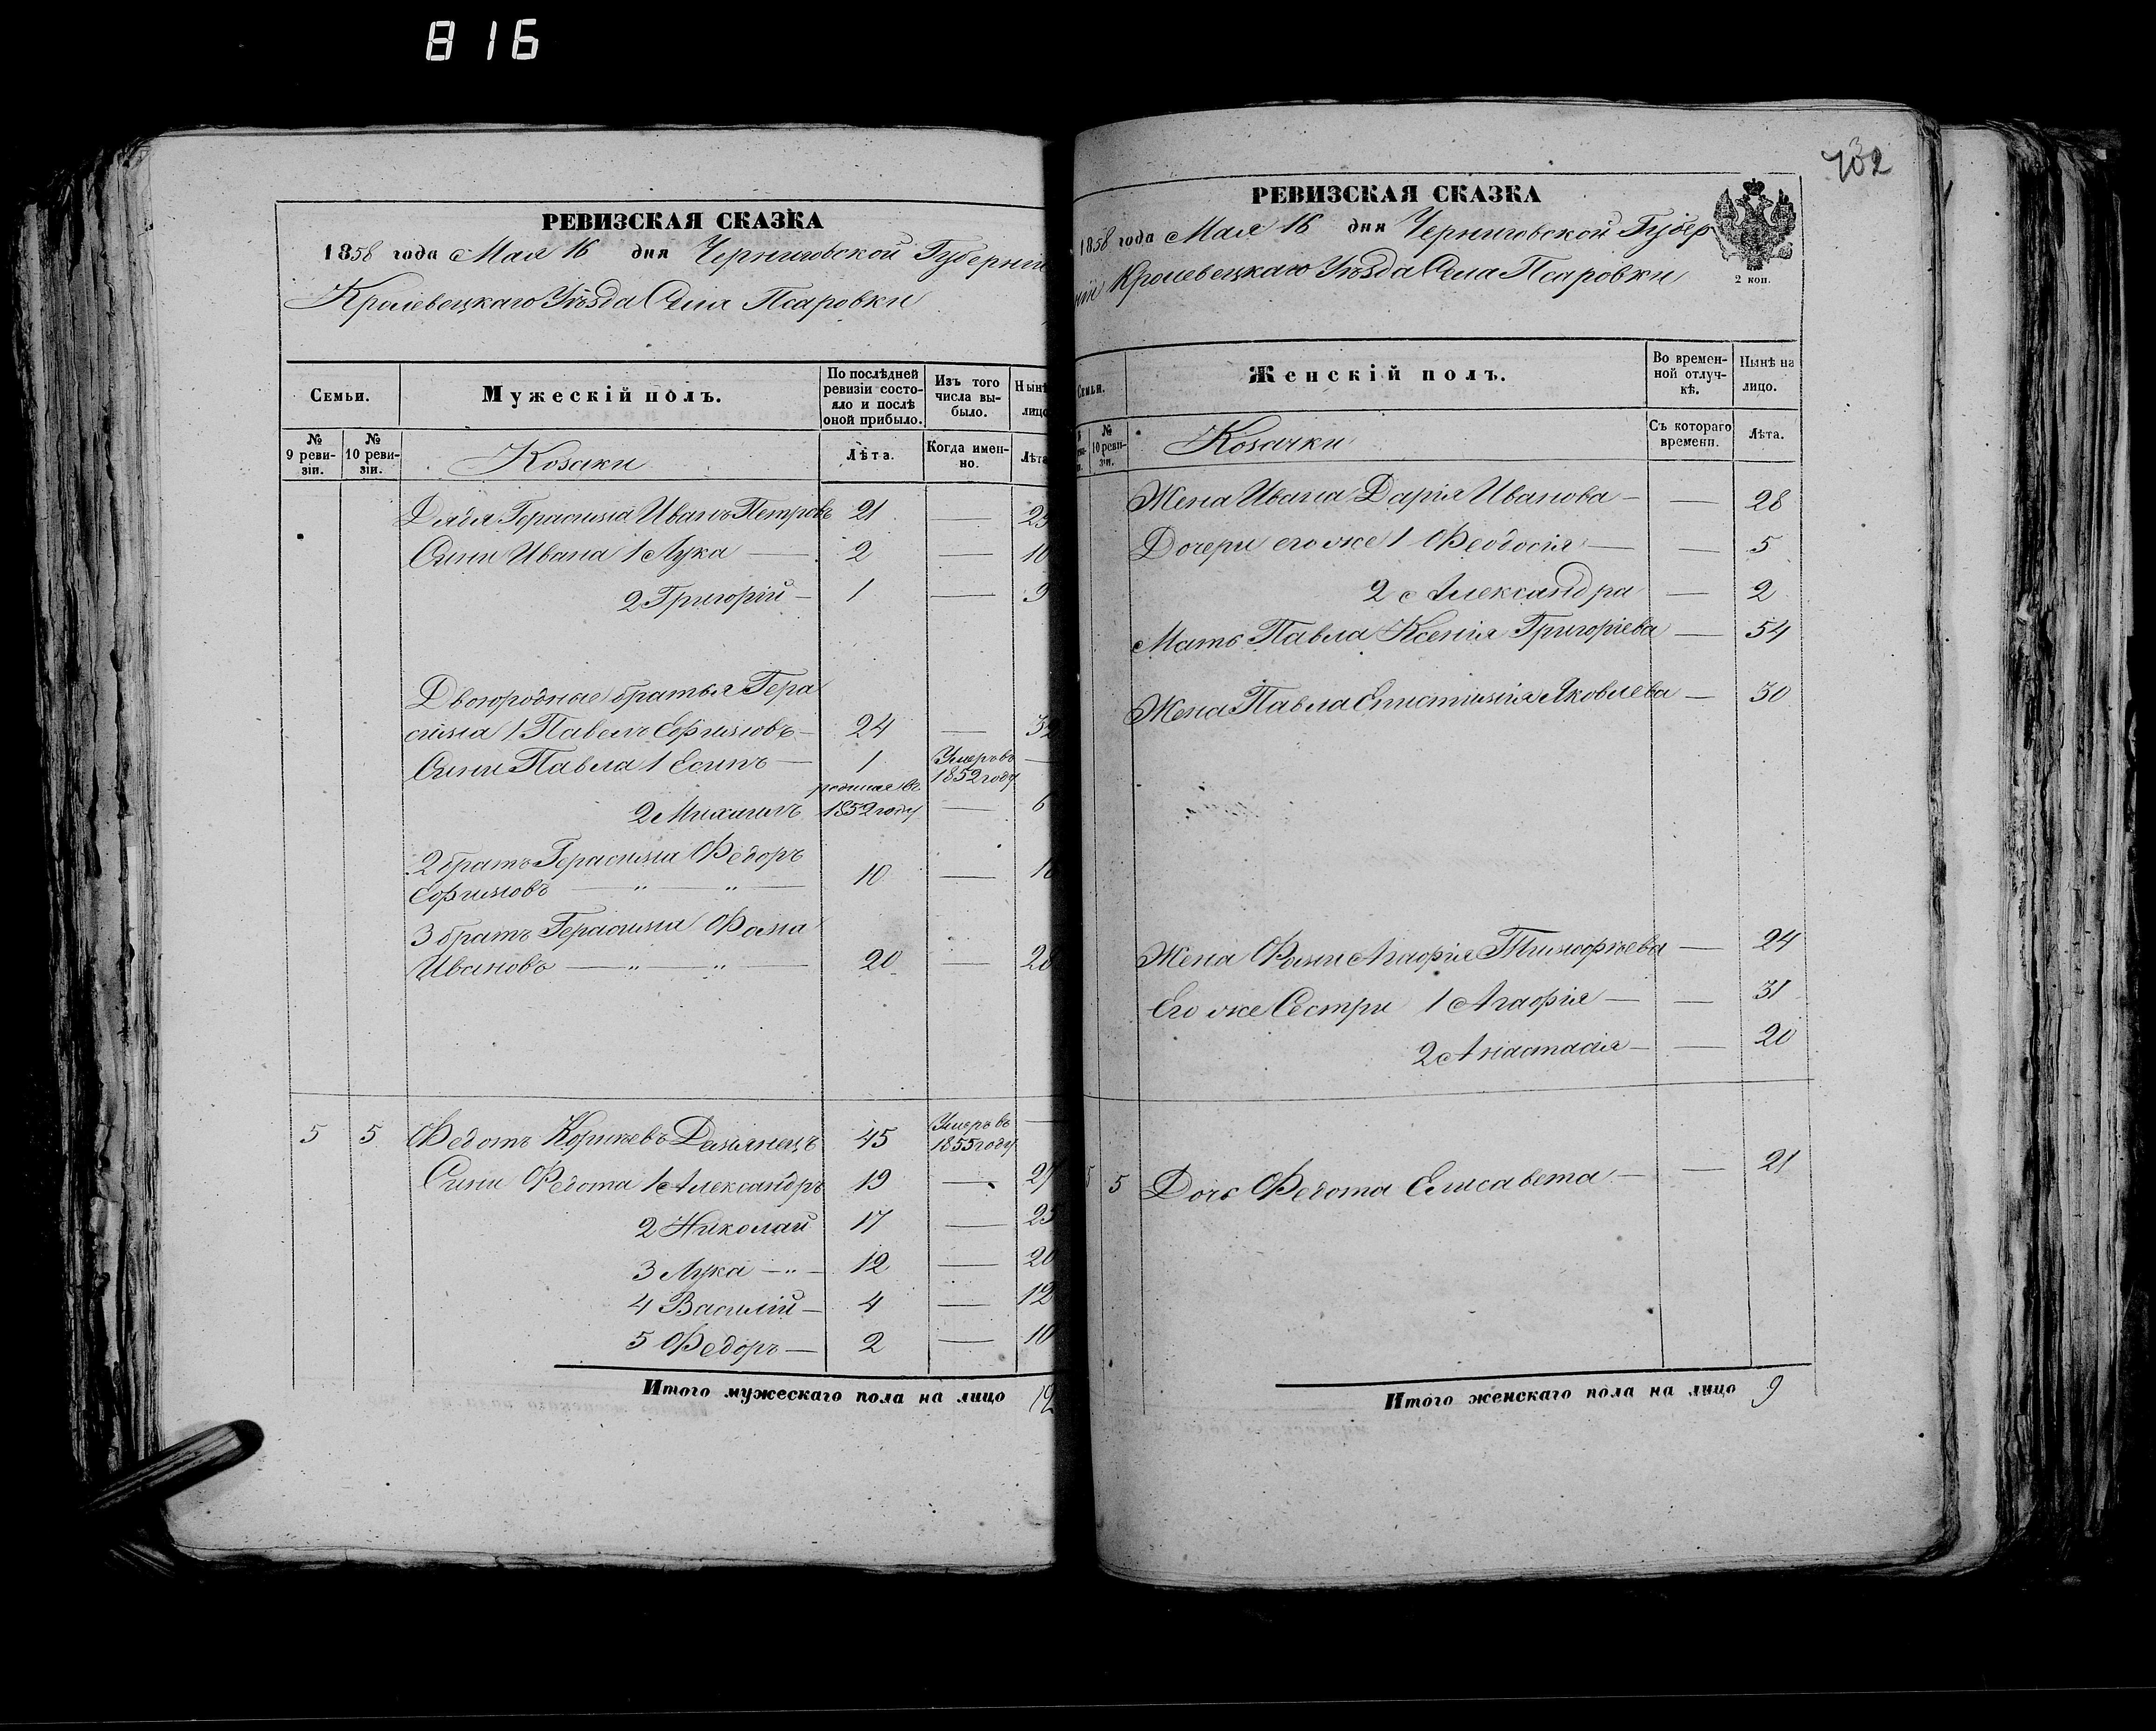 816
РЕВИЗСКАЯ СКАЗКА
1858 года Мая 16 дня Черниговской Губерніи
Кролевецкаго Уѣзда Села Псаровки
Семьи. Мужескій полъ. По послѣдней ревизіи состояло и послѣ оной прибыло. Изъ того числа выбыло. Нынѣ лицо
№ 9 ревизіи. № 10 ревизіи. Козаки Лѣта. Когда именно. Лѣта
Дядя Герасима Иванъ Петровъ 21 — 29
Сыни Ивана 1 Лука — 2 — 10
2 Григорій — 1 — 9
Двоюродные братья Гера
сима 1 Павелъ Ефимовъ — 24 — 32
Сыни Павла 1 Есипъ — 1 Умеръ въ 1852 году —
2 Михаилъ родился въ 1852 году — 6
2 братъ Герасима Федоръ
Ефимовъ — " — " — 10 — 18
3 братъ Герасима Фома
Ивановъ — " — " — 20 — 28
5 5 Федотъ Корнѣевъ 45 Умеръ въ 1855 году —
Сини Федота 1 Александръ 19 — 27
2 Николай 17 — 25
3 Лука — " — 12 — 20
4 Василій — 4 — 12
5 Федоръ — 2 — 10
Итого мужескаго пола на лицо 12
732
РЕВИЗСКАЯ СКАЗКА
1858 года Мая 16 дня Черниговской Губер
ніи Кролевецкаго Уѣзда Села Псаровки
2 коп.
Семьи. Женскій полъ. Во временной отлучкѣ. Нынѣ на лицо.
№ 10 ревизіи. Козачки Съ котораго времени. Лѣта.
Жена Ивана Дарія Иванова — — 28
Дочери его же 1 Феодосія — — 5
2 Александра — 2
Мать Павла Ксенія Григоріева — 54
Жена Павла Епистимія Яковлева — 30
Жена Фоми Агафія Тимофѣева — 24
Его же Сестри 1 Агафія — — 31
2 Анастасія — — 20
5 5 Дочь Федота Елисавета — — 21
Итого женскаго пола на лицо 9